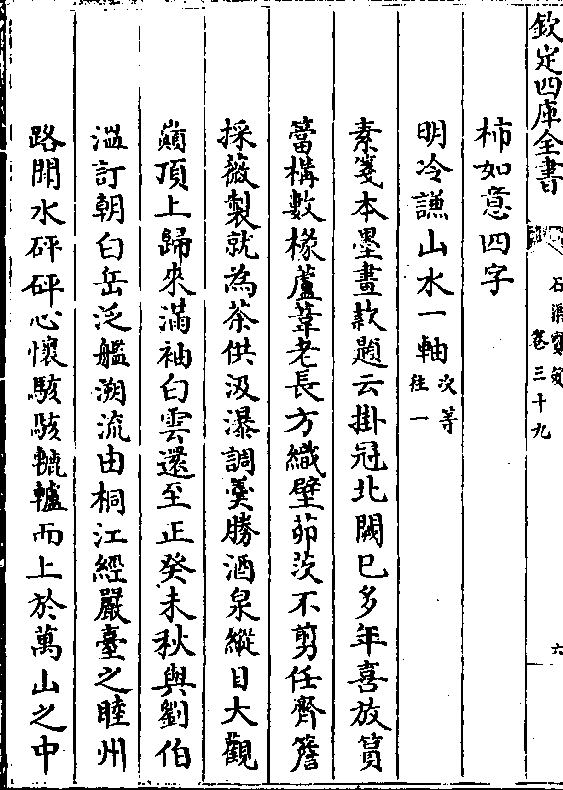 欽定四庫全書
石渠寳笈
卷三十九
六
柿如意四字
明冷謙山水一軸
次等
往一
素箋本墨畫款題云掛冠北闕已多年喜放篔
簹構數椽蘆葦老長方織壁茆茨不剪任齊簷
採薇製就為茶供汲瀑調羮勝酒泉縱目大觀
巔頂上歸來滿袖白雲還至正癸未秋與劉伯
溫訂朝白岳泛艦溯流由桐江經嚴臺之睦州
路開水砰砰心懷駭駭轆轤而上於萬山之中